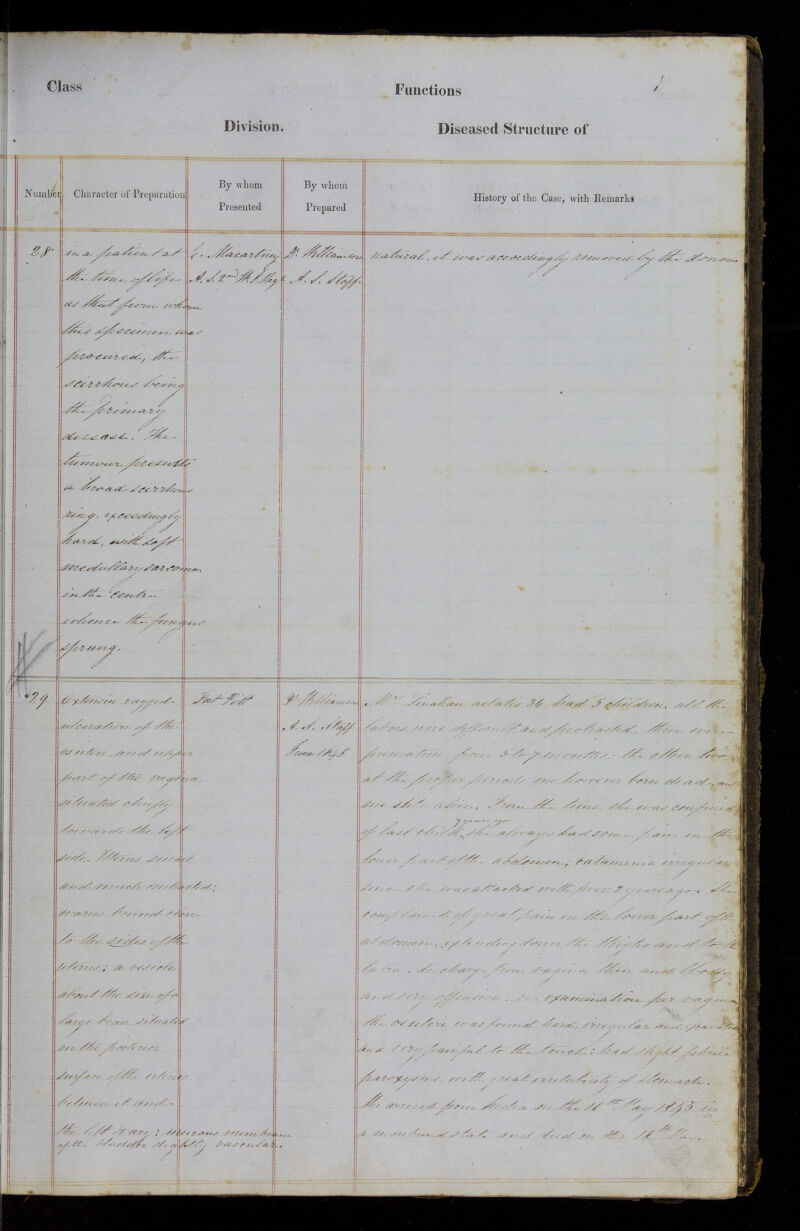 Class
Functions
Division.
Diseased Structure of
Number
Character of Preparation
By whom
Presented
By whom
Prepared
History of the Case, with Remarks
28
in a patient at
the time of life
as that from whom
this specimen was
procured, the
scirrhous being
the primary
disease. The
tumour presents
a broad scirrhous
ring, exceedingly
hard, with soft
medullary sarcoma
in the centre
whence the fungus
sprung.
Macartney
A. S. 2nd W. I. Regt
Dr Williamson
A. S. Staff
natural, it was accordingly removed by the donor
29
Extensive ragged
ulceration of the
os uteri and upper
part of the vagina
situated chiefly
towards the left
side. Uterus small
and much contracted;
ovaries bound close
to the sides of the
uterus; a vesicle
about the size of a
large bean situated
on the posterior
surface of the uterus
between it and
the left ovary; mucous membrane
of the bladder slightly vascular.
Fort Pitt
Dr Williamson
A. S. Staff
June 1845
Mrs aetatis 36, had 5 children, all the
labors were difficult and protracted, three were
premature from 5 to 7 months: the other two
at the proper periods one however born dead, and
one still alive. From the time she was confined
of last child years ago she always had some pain in the
lower part of the abdomen; catamenia irregular
since she was attacked with fever 2 years ago. She
complained of great pain in the lower part of the
abdomen, extending down the thighs and to the
labia, discharge from vagina thin and bloody
and very offensive: on examination per vagina
the os uteri was found hard, irregular and
and very painful to the touch: had slight febrile
paroxysms with great irritability of stomach.
She arrived from India on the 16th May 1845 in
a moribund state and died on the 18th May.